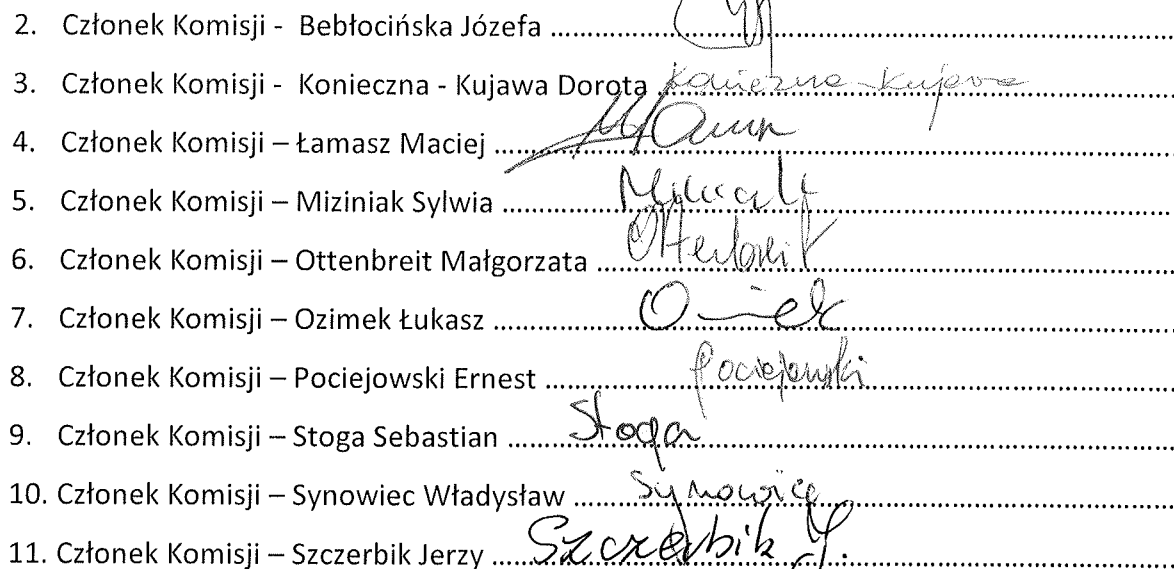 2. Członek Komisji - Bebłocińska Józefa ....................
3. Członek Komisji - Konieczna - Kujawa Dorota Konieczna-Kujawa
4. Członek Komisji – Łamasz Maciej ....................
5. Członek Komisji – Miziniak Sylwia ....................
6. Członek Komisji – Ottenbreit Małgorzata .......... Ottenbreit
7. Członek Komisji – Ozimek Łukasz .......... Ozimek
8. Członek Komisji – Pociejowski Ernest .......... Pociejowski
9. Członek Komisji – Stoga Sebastian .......... Stoga
10. Członek Komisji – Synowiec Władysław .......... Synowiec
11. Członek Komisji – Szczerbik Jerzy ...... Szczerbik J.